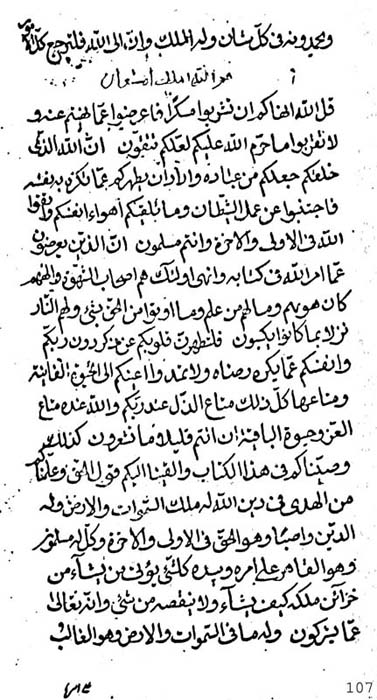 ويحمدونه في كل شأن وله الملك وانه الى الله فليرجع كل
هو الله الملك
قل الله انهاكم ان تشربوا مسكرا فاعرضوا عما نهيتم عنه و
لا تقربوا ما حرم الله عليكم لعلكم متقون ان الله الذي
خلقكم جعلكم من عباده واراد ان يطهركم عما تكره به نفسه
فاجتنبوا عن عمل الشيطان وما تلقيكم اهواء انفسكم واتقوا
الله في الاولى والاخرة وانتم مسلمون ان الذين يعرضون
عما امر الله في كتابه وانهى اولئك هم اصحاب الشهوة والههم
كان هويهم وما لهم من علم وما اوتوا من الحق بشئ ولهم النار
نزلا بما كانوا يكسبون فلتطهرن قلوبكم عن ذكر دون ربكم
وانفسكم عما يكره رضاه ولا تمدوا اعينكم الى الحيوة الفانية
ومتاعها كل ذلك متاع الذل عند ربكم والله عنده متاع
العز وحيوة الباقية ان انتم قليلا ما تشعرون كذلك
وصيناكم في هذا الكتاب والقينا اليكم قول الحق وعلمناكم
من الهدى في دين الله له ملك السموات والارض وله
الدين واصبا وهو الحق في الاولى والاخرة وكل له مسلمون
وهو القاهر على امره وبيده كل شئ يؤتي من يشاء من
خزائن ملكه كيف يشاء ولا ينقصه من شئ وانه تعالى
عما يشركون وله ما في السموات والارض وهو الغالب
107